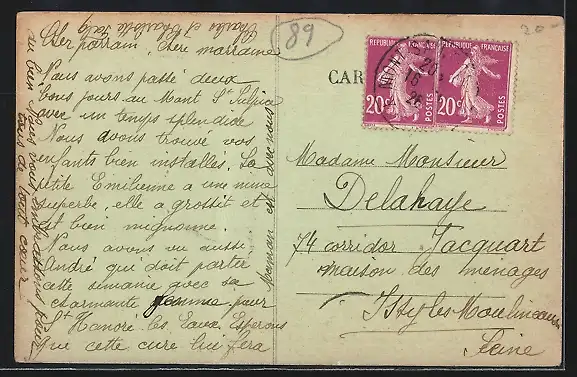 Charles et Charlotte
Cher parrain, chère marraine
Nous avons passé deux
bons jours au Mont St Sulpice
avec un temps splendide
Nous avons trouvé vos
enfants bien installés. La
petite Emilienne a une mine
superbe, elle a grossit et
est bien mignonne.
Nous avons vu aussi
André qui doit partir
cette semaine avec sa
charmante femme pour
St Honoré les Eaux. Esperons
que cette cure lui fera
du bien. Nous vous embrassons tous
de tout cœur
Maman est avec nous
89
20
CAR
REPUBLIQUE FRANÇAISE
20c
POSTES
REPUBLIQUE FRANÇAISE
20c
POSTES
Madame Monsieur
Delahaye
74 corridor Jacquart
maison des ménages
Issy les Moulineaux
Seine